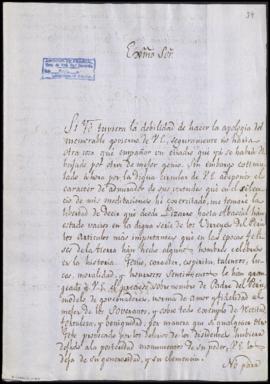 34
Exmo Sor.
Si Yo tuviera la debilidad de hacer la apologia del
memorable govierno de V.E. seguramente no haria
otra cosa que empañar un quadro que ya se habrá di-
bujado por otro de mejor genio. Sin embargo estimu-
lado ahora por la digna circular de V.E. a deponer el
caracter de admirador de sus virtudes que en el silen-
cio de mis meditaciones he exercitado, me tomaré la
libertad de decir que desde Pizarro hasta Abascal han
estado vacios en la digna serie de los Vireyes del Perú
los Articulos mas importantes que en las épocas feli-
ces de la tierra han hecho algunos hombres celebres
en la historia. Genio, caracter, espiritu, talentos, lu-
ces, moralidad, y honrosos sentimientos le han gran-
geado á V.E. el precioso sobre nombre de Padre del Perú,
modelo de governadores, norma de Amor y fidelidad al
mejor de los Soveranos, y sobre todo exemplo de Rectitud
fortaleza, y benignidad; por manera que si qualesquiera
provocado por los delirios de los disidentes hubiera
dejado á la posteridad monumentos de su poder, V.E. los
deja de su generosidad, y su clemencia.
No para